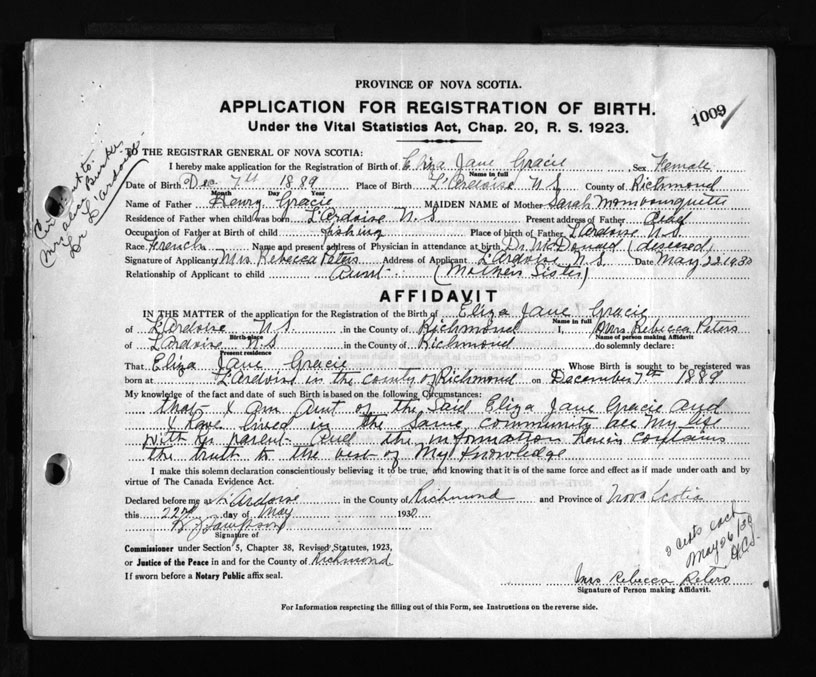 PROVINCE OF NOVA SCOTIA.
APPLICATION FOR REGISTRATION OF BIRTH.
1009
Under the Vital Statistics Act, Chap. 20, R. S. 1923.
TO THE REGISTRAR GENERAL OF NOVA SCOTIA:
I hereby make application for the Registration of Birth of Eliza Jane Gracie Sex Female
Name in full
Date of Birth Dec 7th 1889 Place of Birth L'Ardoise N S County of Richmond
Month Day Year
Name of Father Henry Gracie MAIDEN NAME of Mother Sarah Mombourquette
Residence of Father when child was born L'Ardoise N. S Present address of Father Dead
Occupation of Father at Birth of child fishing Place of birth of Father L'Ardoise N. S
Race French Name and present address of Physician in attendance at birth Dr. McDonald (deseased)
Signature of Applicant Mrs Rebecca Peters Address of Applicant L'Ardoise N. S. Date May 22 1930
Relationship of Applicant to child Aunt (Mothers Sister)
AFFIDAVIT
IN THE MATTER of the application for the Registration of the Birth of Eliza Jane Gracie
Name in full
of L'Ardoise N S in the County of Richmond I, Mrs Rebecca Peters
Birth-place Name of person making Affidavit
of L'Ardoise N S in the County of Richmond do solemnly declare:
Present residence
That Eliza Jane Gracie Whose Birth is sought to be registered was
born at L'Ardoise in the county of Richmond on December 7th 1889
My knowledge of the fact and date of such Birth is based on the following Circumstances:
that I am Aunt of the said Eliza Jane Gracie and
I have lived in the same community all my life
with his parent and the information herein contains
the truth to the best of My Knowledge
I make this solemn declaration conscientiously believing it to be true, and knowing that it is of the same force and effect as if made under oath and by
virtue of The Canada Evidence Act.
Declared before me at L'Ardoise in the County of Richmond and Province of Nova Scotia
this 22nd day of May 1930
Sampson
Signature of
Commissioner under Section 5, Chapter 38, Revised Statutes, 1923,
or Justice of the Peace in and for the County of Richmond
If sworn before a Notary Public affix seal.
May 26/30
Mrs Rebecca Peters
Signature of Person making Affidavit.
For Information respecting the filling out of this Form, see Instructions on the reverse side.